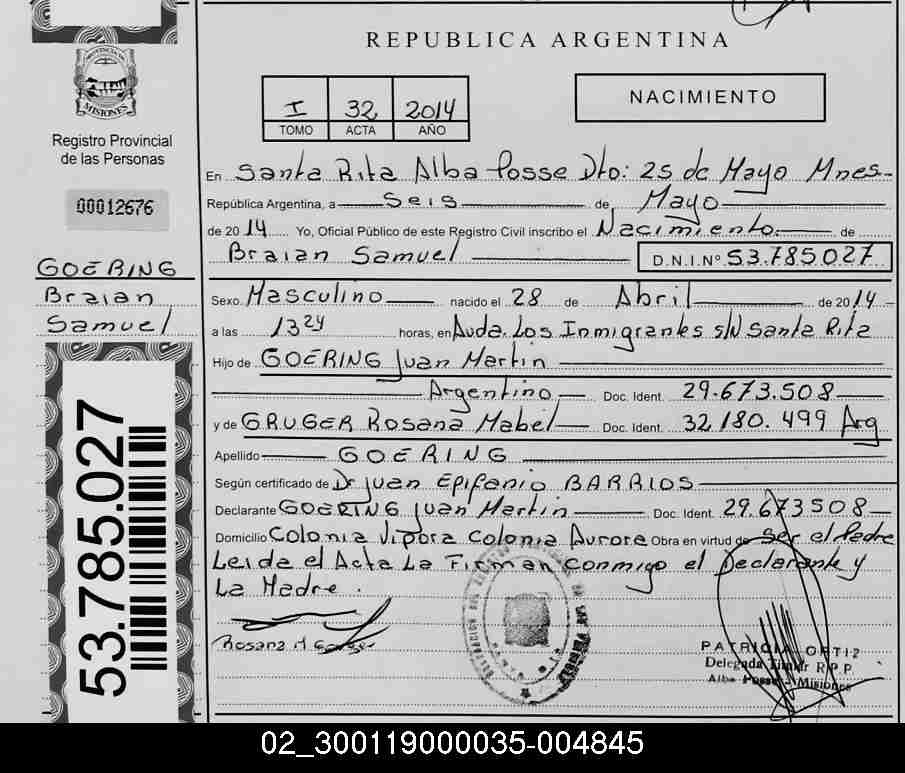 REPUBLICA ARGENTINA
PROVINCIA DE
MISIONES
Registro Provincial
de las Personas
00012676
GOERING
Braian
Samuel
53.785.027
I 32 2014
TOMO ACTA AÑO
NACIMIENTO
En Santa Rita Alba Posse Dto: 25 de Mayo Mnes-
República Argentina, a Seis de Mayo
de 2014 Yo, Oficial Público de este Registro Civil inscribo el Nacimiento de
Braian Samuel D.N.I.Nº 53.785.027
Sexo Masculino nacido el 28 de Abril de 2014
a las 13 24 horas, en Avda. Los Inmigrantes s/N Santa Rita
Hijo de GOERING Juan Martin
Argentino Doc. Ident. 29.673.508
y de GRUGER Rosana Mabel Doc. Ident. 32.180.499 Arg
Apellido GOERING
Según certificado de Dr Juan Epifanio BARRIOS
Declarante GOERING Juan Martin Doc. Ident. 29.673508
Domicilio Colonia Vipora Colonia Aurora Obra en virtud de Ser el Padre
Leida el Acta La Firman conmigo el Declarante y
La Madre.
Rosana M
PATRICIA ORTIZ
Delegada Titular R.P.P.
Alba Posse - Misiones
02_300119000035-004845